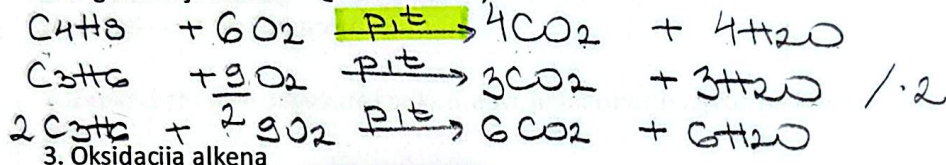 C4H8 + 6O2 p,t → 4CO2 + 4H2O
C3H6 + 9/2 O2 p,t → 3CO2 + 3H2O /·2
2C3H6 + 9O2 p,t → 6CO2 + 6H2O
3. Oksidacija alkena